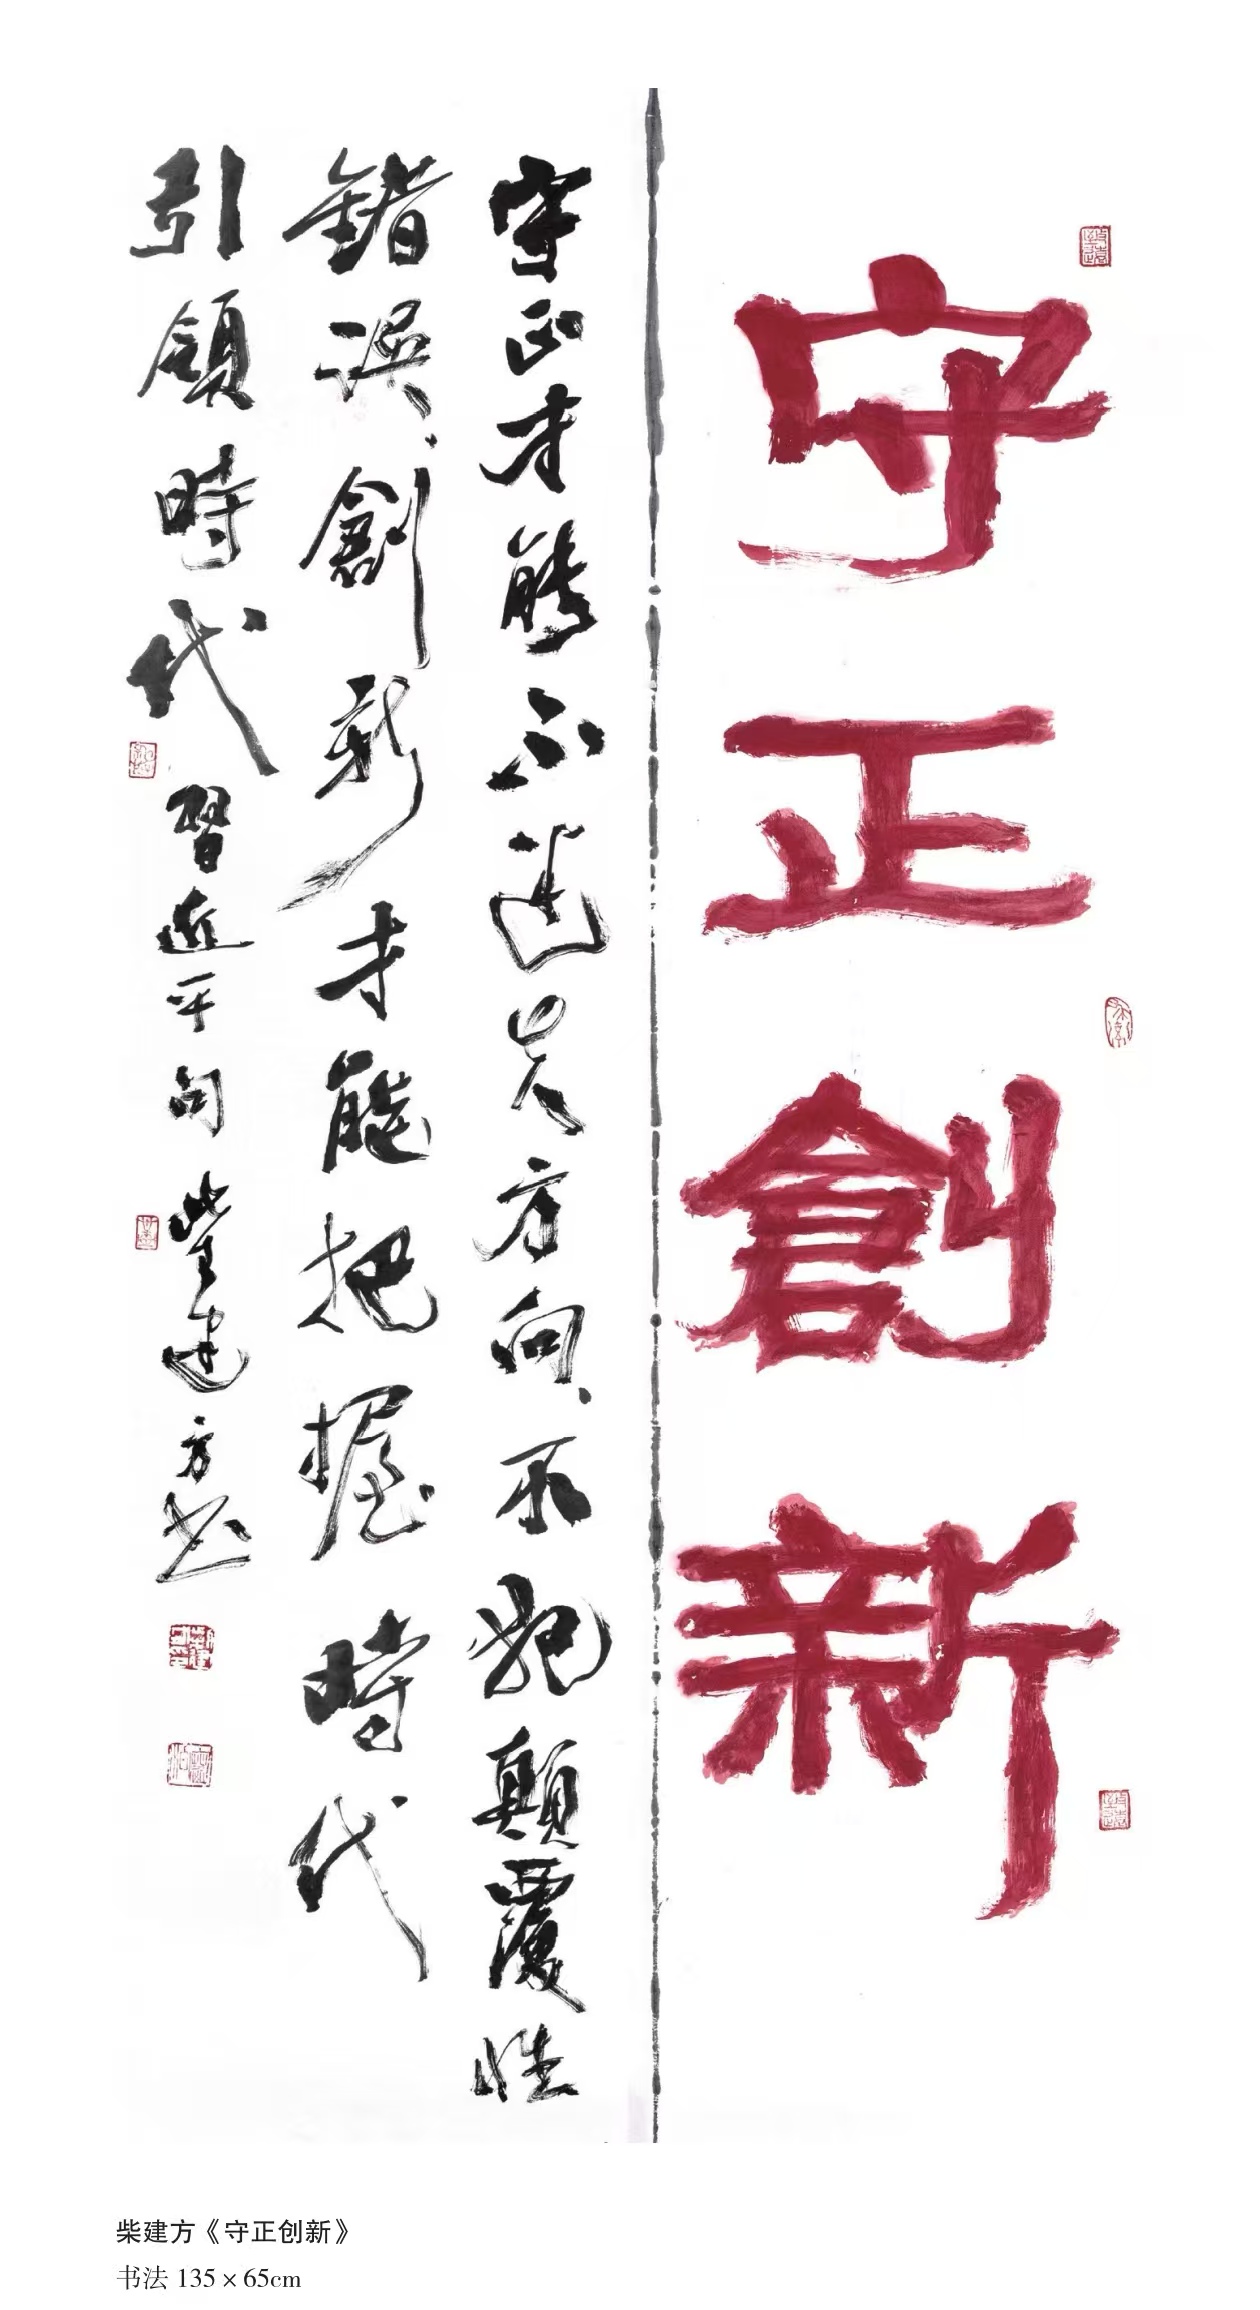 守正創新
守正才能不迷失方向、不犯顛覆性
錯誤、創新才能把握時代
引領時代 習近平句 柴建方書
柴建方《守正创新》
书法 135×65cm